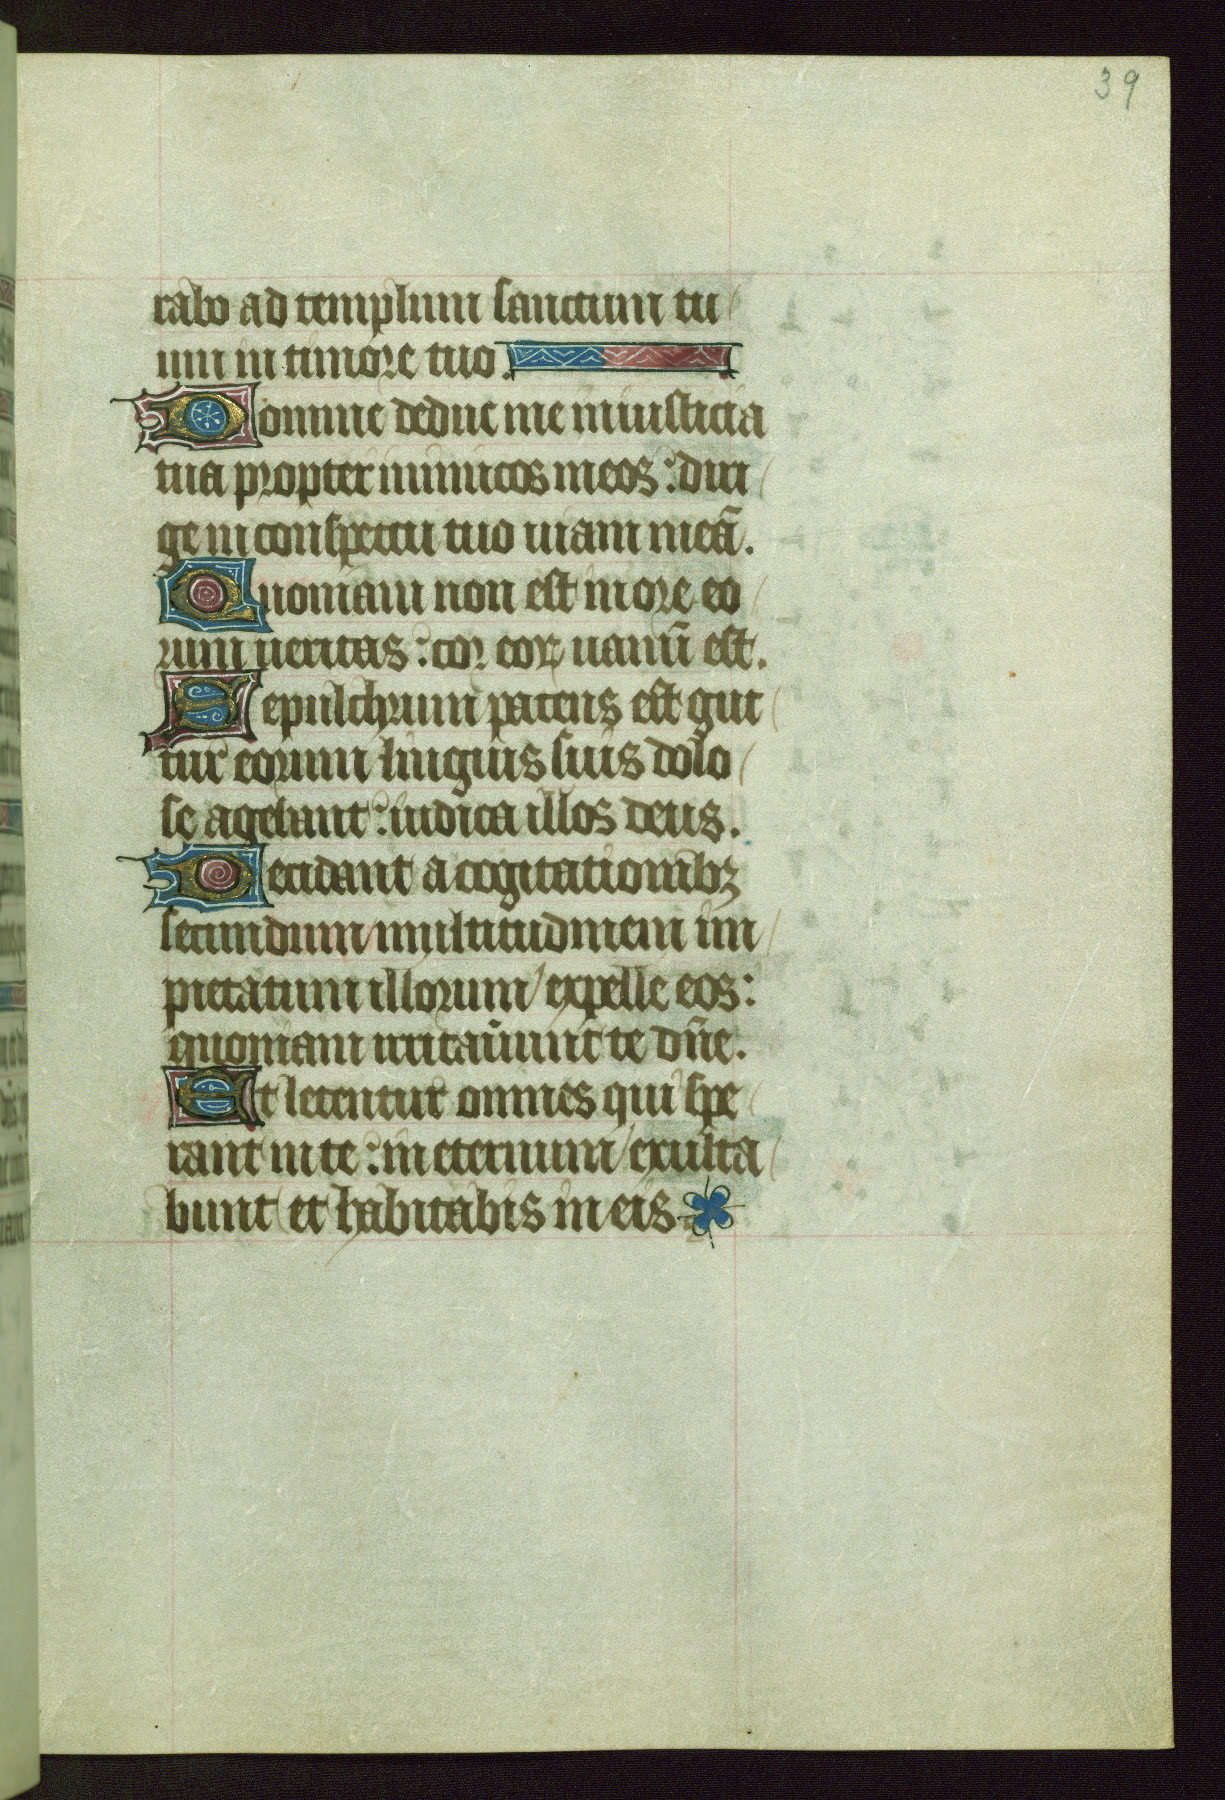 39
rabo ad templum sanctum tu
um in timore tuo.
Domine deduc me in iusticia
tua propter inimicos meos: diri
ge in conspectu tuo uiam meā.
Quoniam non est in ore eo
rum ueritas: cor eoꝝ uanū est.
Sepulchrum patens est gut
tur eorum linguis suis dolo
se agebant: iudica illos deus.
Decidant a cogitationibꝫ
secundum multitudinem im
pietatum illorum expelle eos:
quoniam irritauūnt te dn̄e.
Et letentur omnes qui spe
rant in te: in eternum exulta
bunt et habitabis in eis